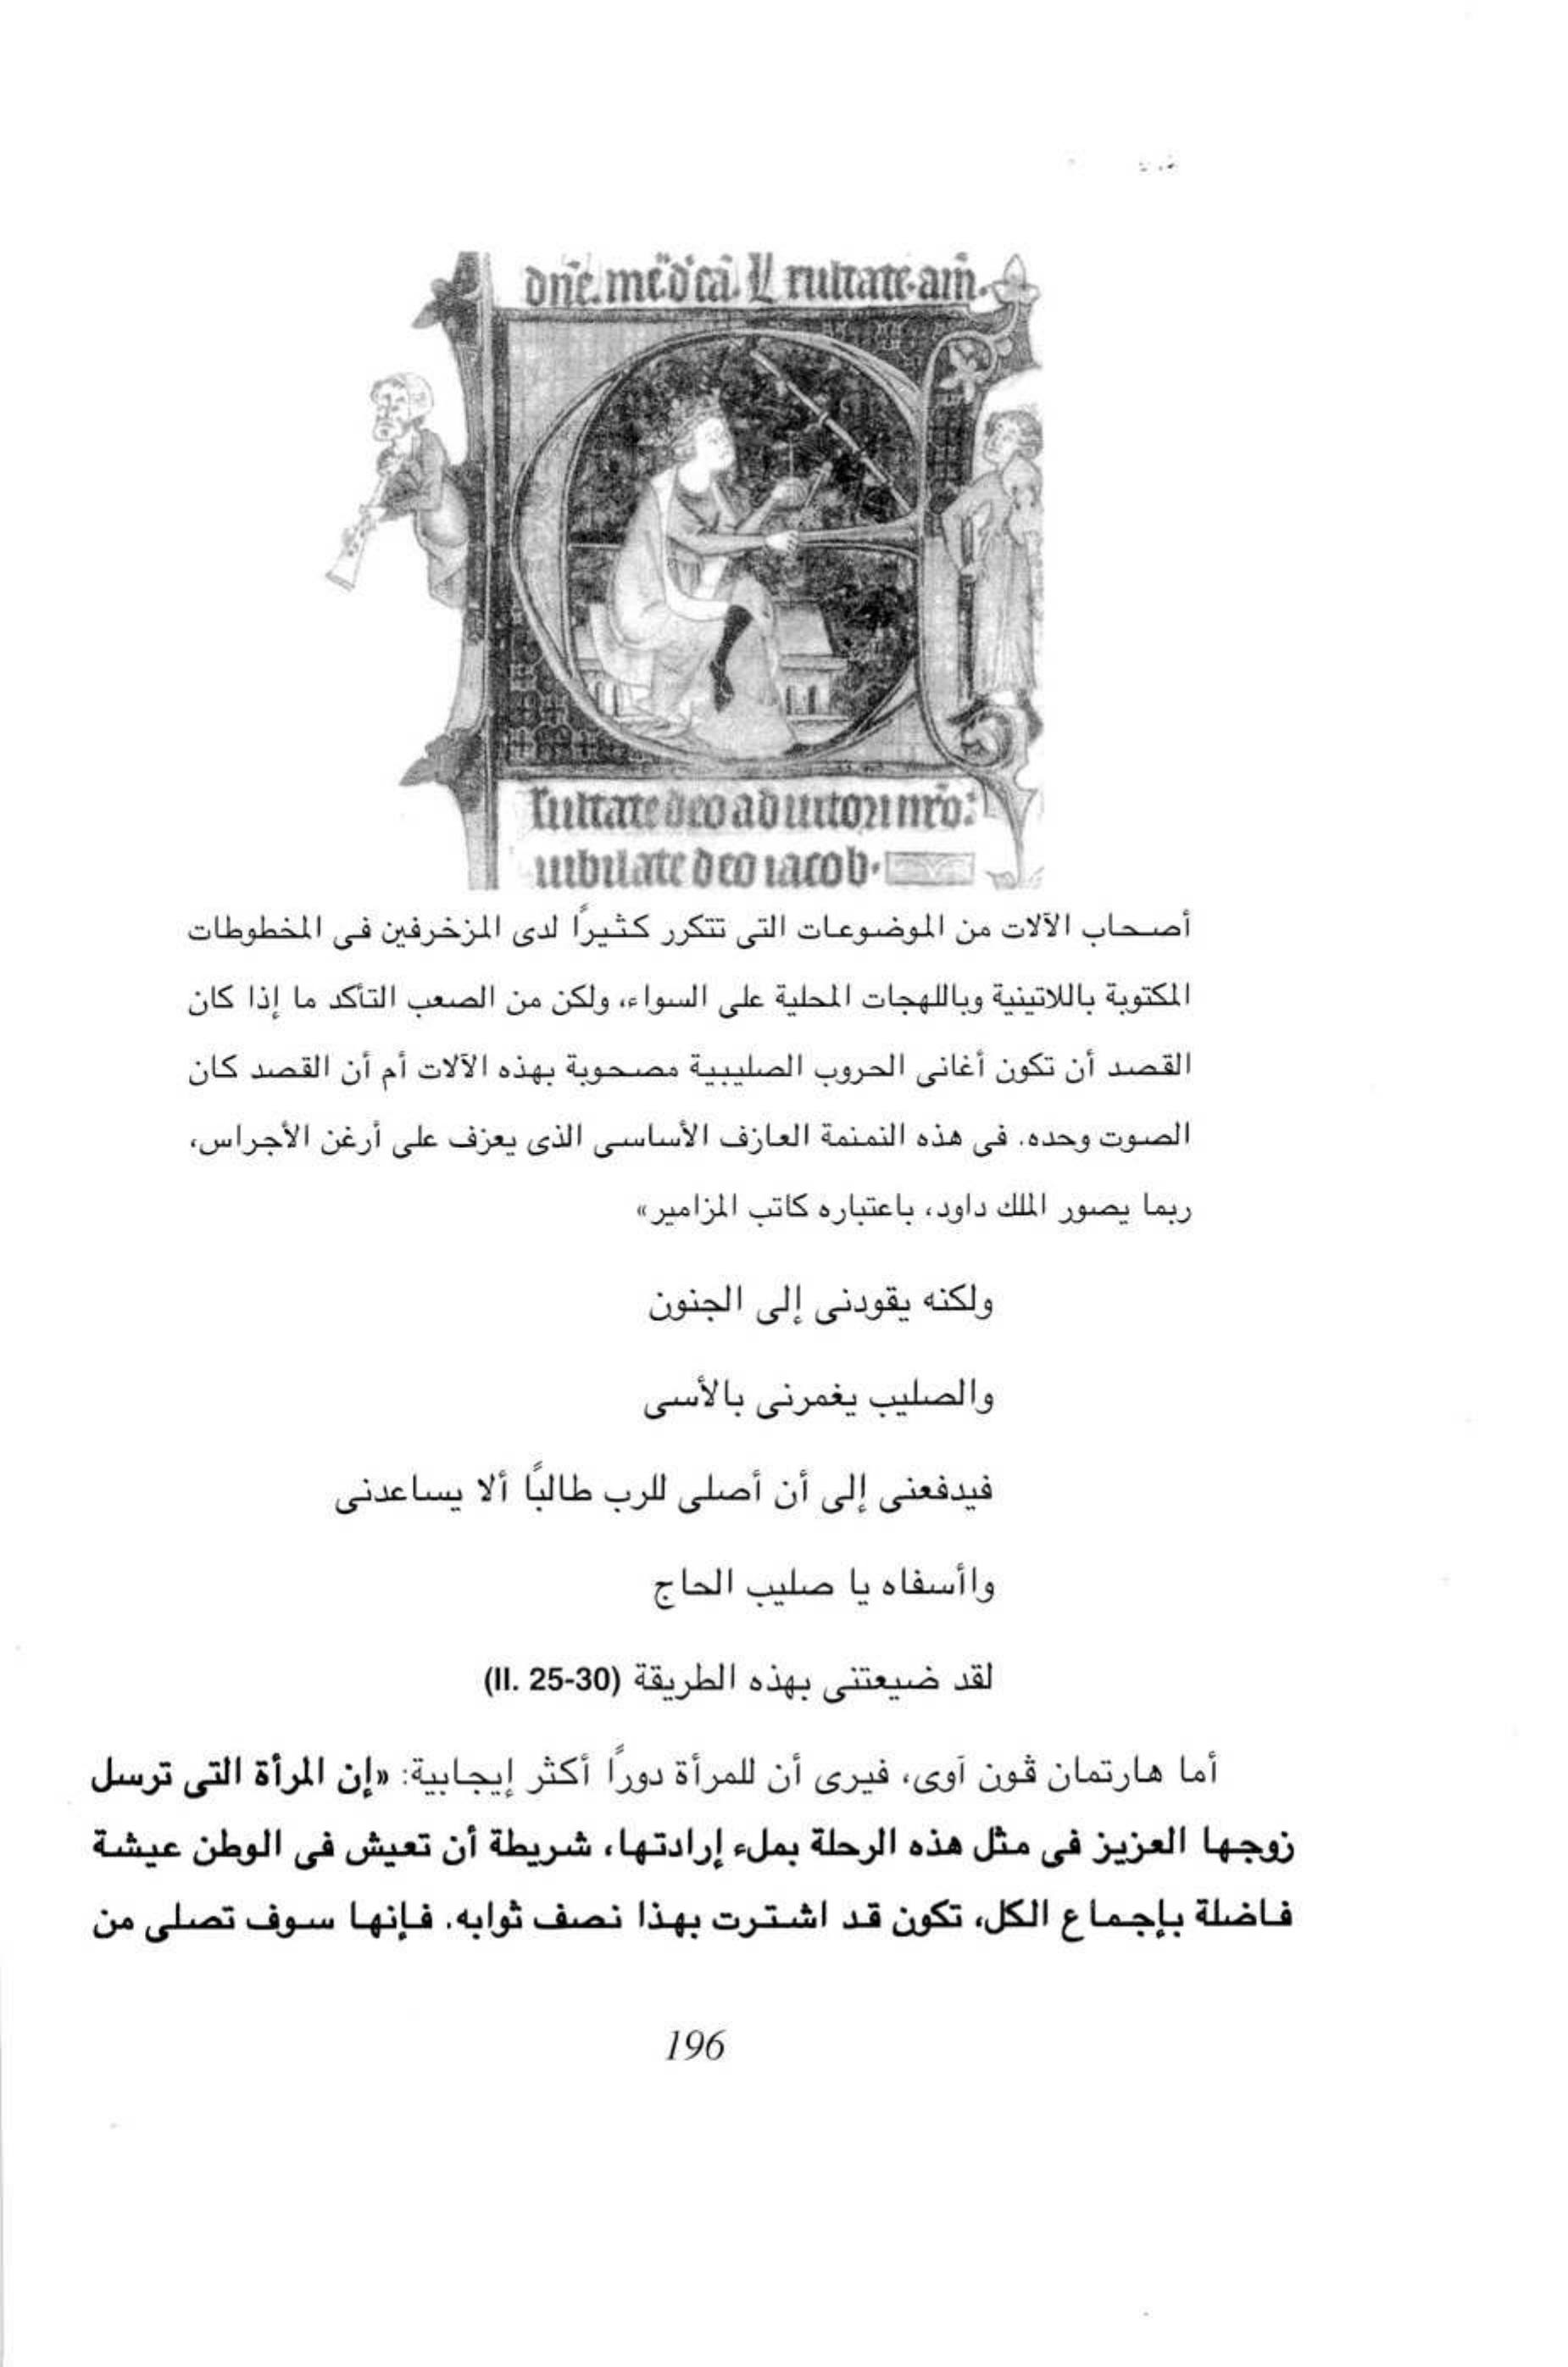 dñe. mẽdcã. Exultate. am̃.
sultate deo adiutori nr̃o:
iubilate deo iacob.
أصحاب الآلات من الموضوعات التى تتكرر كثيراً لدى المزخرفين فى المخطوطات
المكتوبة باللاتينية وباللهجات المحلية على السواء، ولكن من الصعب التأكد ما إذا كان
القصد أن تكون أغانى الحروب الصليبية مصحوبة بهذه الآلات أم أن القصد كان
الصوت وحده. فى هذه النمنمة العازف الأساسى الذى يعزف على أرغن الأجراس،
ربما يصور الملك داود، باعتباره كاتب المزامير»
ولكنه يقودنى إلى الجنون
والصليب يغمرنى بالأسى
فيدفعنى إلى أن أصلى للرب طالبًا ألا يساعدنى
واأسفاه يا صليب الحاج
لقد ضيعتنى بهذه الطريقة (II. 25-30)
أما هارتمان ڤون آوى، فيرى أن للمرأة دورًا أكثر إيجابية: «إن المرأة التى ترسل
زوجها العزيز فى مثل هذه الرحلة بملء إرادتها، شريطة أن تعيش فى الوطن عيشة
فاضلة بإجماع الكل، تكون قد اشترت بهذا نصف ثوابه. فإنها سوف تصلى من
196